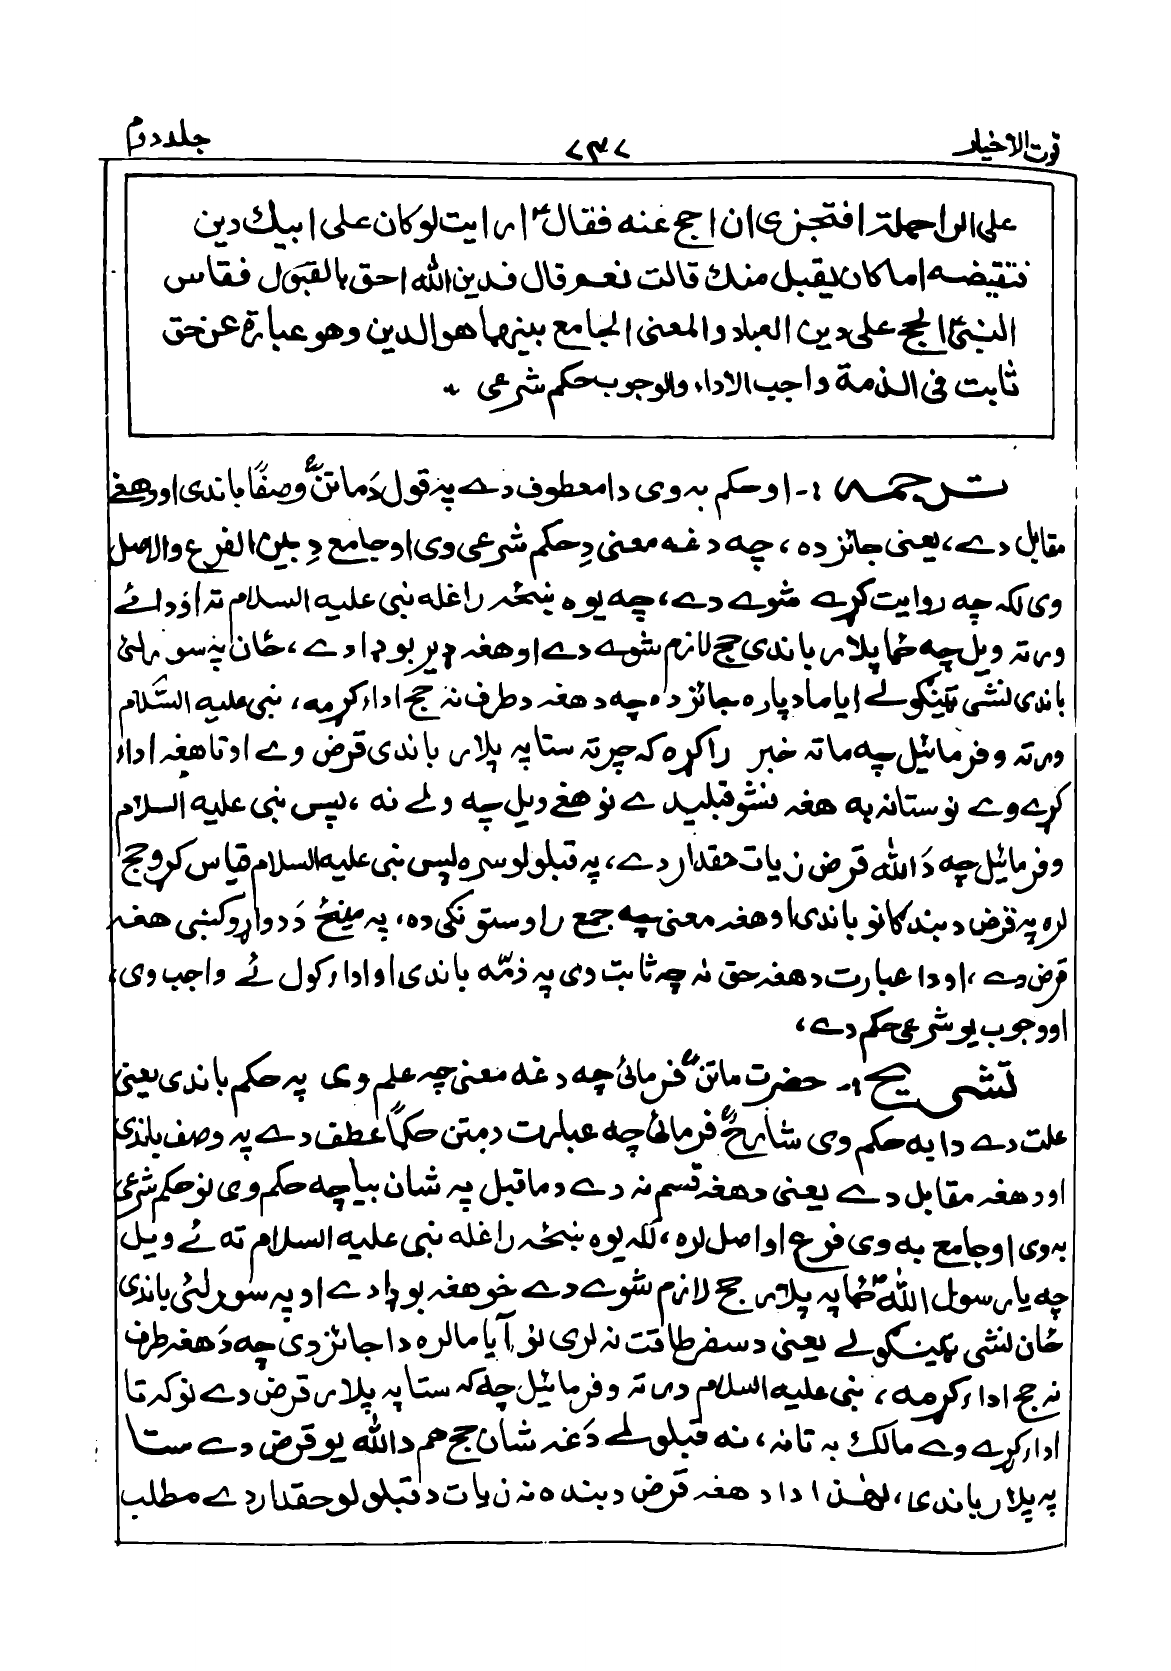 قوت الاخیار ‹۳› جلد دوم
علی الراحلة افتجزی ان احج عنه فقال ارایت لو کان علی ابیك دین
فتقیضه اما کان یقبل منك قالت نعم قال فدین الله احق بالقبول فقاس
النبی الحج علی دین العباد والمعنی الجامع بینهما هو الدین وهو عبارة عن حق
ثابت فی الذمة واجب الاداء والوجوب حکم شرعی
ترجمه :- او حکم به وی دا معطوف دے په قول دَ ماتن وصفًا باندی او دهغے
مقابل دے، یعنی جائز ده ، چه دغه معنی دِ حکم شرعی وی او جامع دِ بین الفرع والاصل
وی لکه چه روایت کړے شوے دے، چه یوه ښځه راغله نبی علیه السلام ته اؤ دائے
ورته ویل چه ځما پلار باندی حج لازم شوے دے او هغه ډیر بوډا دے ، ځان په سورلئ
باندی نشی ټینګولے ایا ما دپاره جائز ده چه د هغه د طرف نه حج اداء کړمه، نبی علیه السّلام
ورته و فرمائیل چه ماته خبر راکړه که چرته ستا په پلار باندی قرض وے او تا هغه اداء
کړے وے نو ستا نه به هغه نشو قبلیدے نو هغے ویل چه ولے نه ، پس نبی علیه السلام
وفرمائیل چه دَ الله قرض زیات حقدار دے، په قبلولو سره پس نبی علیه السلام قیاس کړو حج
لره په قرض د بندګانو باندی او هغه معنی چه جمع راوستونکی ده، په مینځ دَ دواړو کښی هغه
قرض دے ، او دا عبارت د هغه حق نه چه ثابت وی په ذمّه باندی او اداء کول ئے واجب وی،
او وجوب یو شرعی حکم دے،
تشریح :- حضرت ماتن فرمائی چه دغه معنی چه علم وی په حکم باندی یعنی
علت دے دا به حکم وی شارح فرمائی چه عبارت د متن حکمًا عطف دے په وصف باندی
او د هغه مقابل دے یعنی د هغه قسم نه دے د ماقبل په شان بیا چه حکم وی نو حکم شرعی
به وی او جامع به وی فرع او اصل لره، لکه یوه ښځه راغله نبی علیه السلام ته ئے ویل
چه یا رسول الله ځما په پلار حج لازم شوے دے خو هغه بوډا دے او په سورلئی باندی
ځان نشی ټینګولے یعنی د سفر طاقت نه لری نو آیا ما لره دا جائز دی چه دَ هغه طرف
نه حج اداء کړمه ، نبی علیه السلام ورته و فرمائیل چه که ستا په پلار قرض دے نو که تا
اداء کړے وے مالک به تا نه، نه قبلولے دَغه شان حج هم د الله یو قرض دے ستا
په پلار باندی ، لهٰذا ادا د هغه قرض د بنده نه زیات د قبلولو حقدار دے مطلب